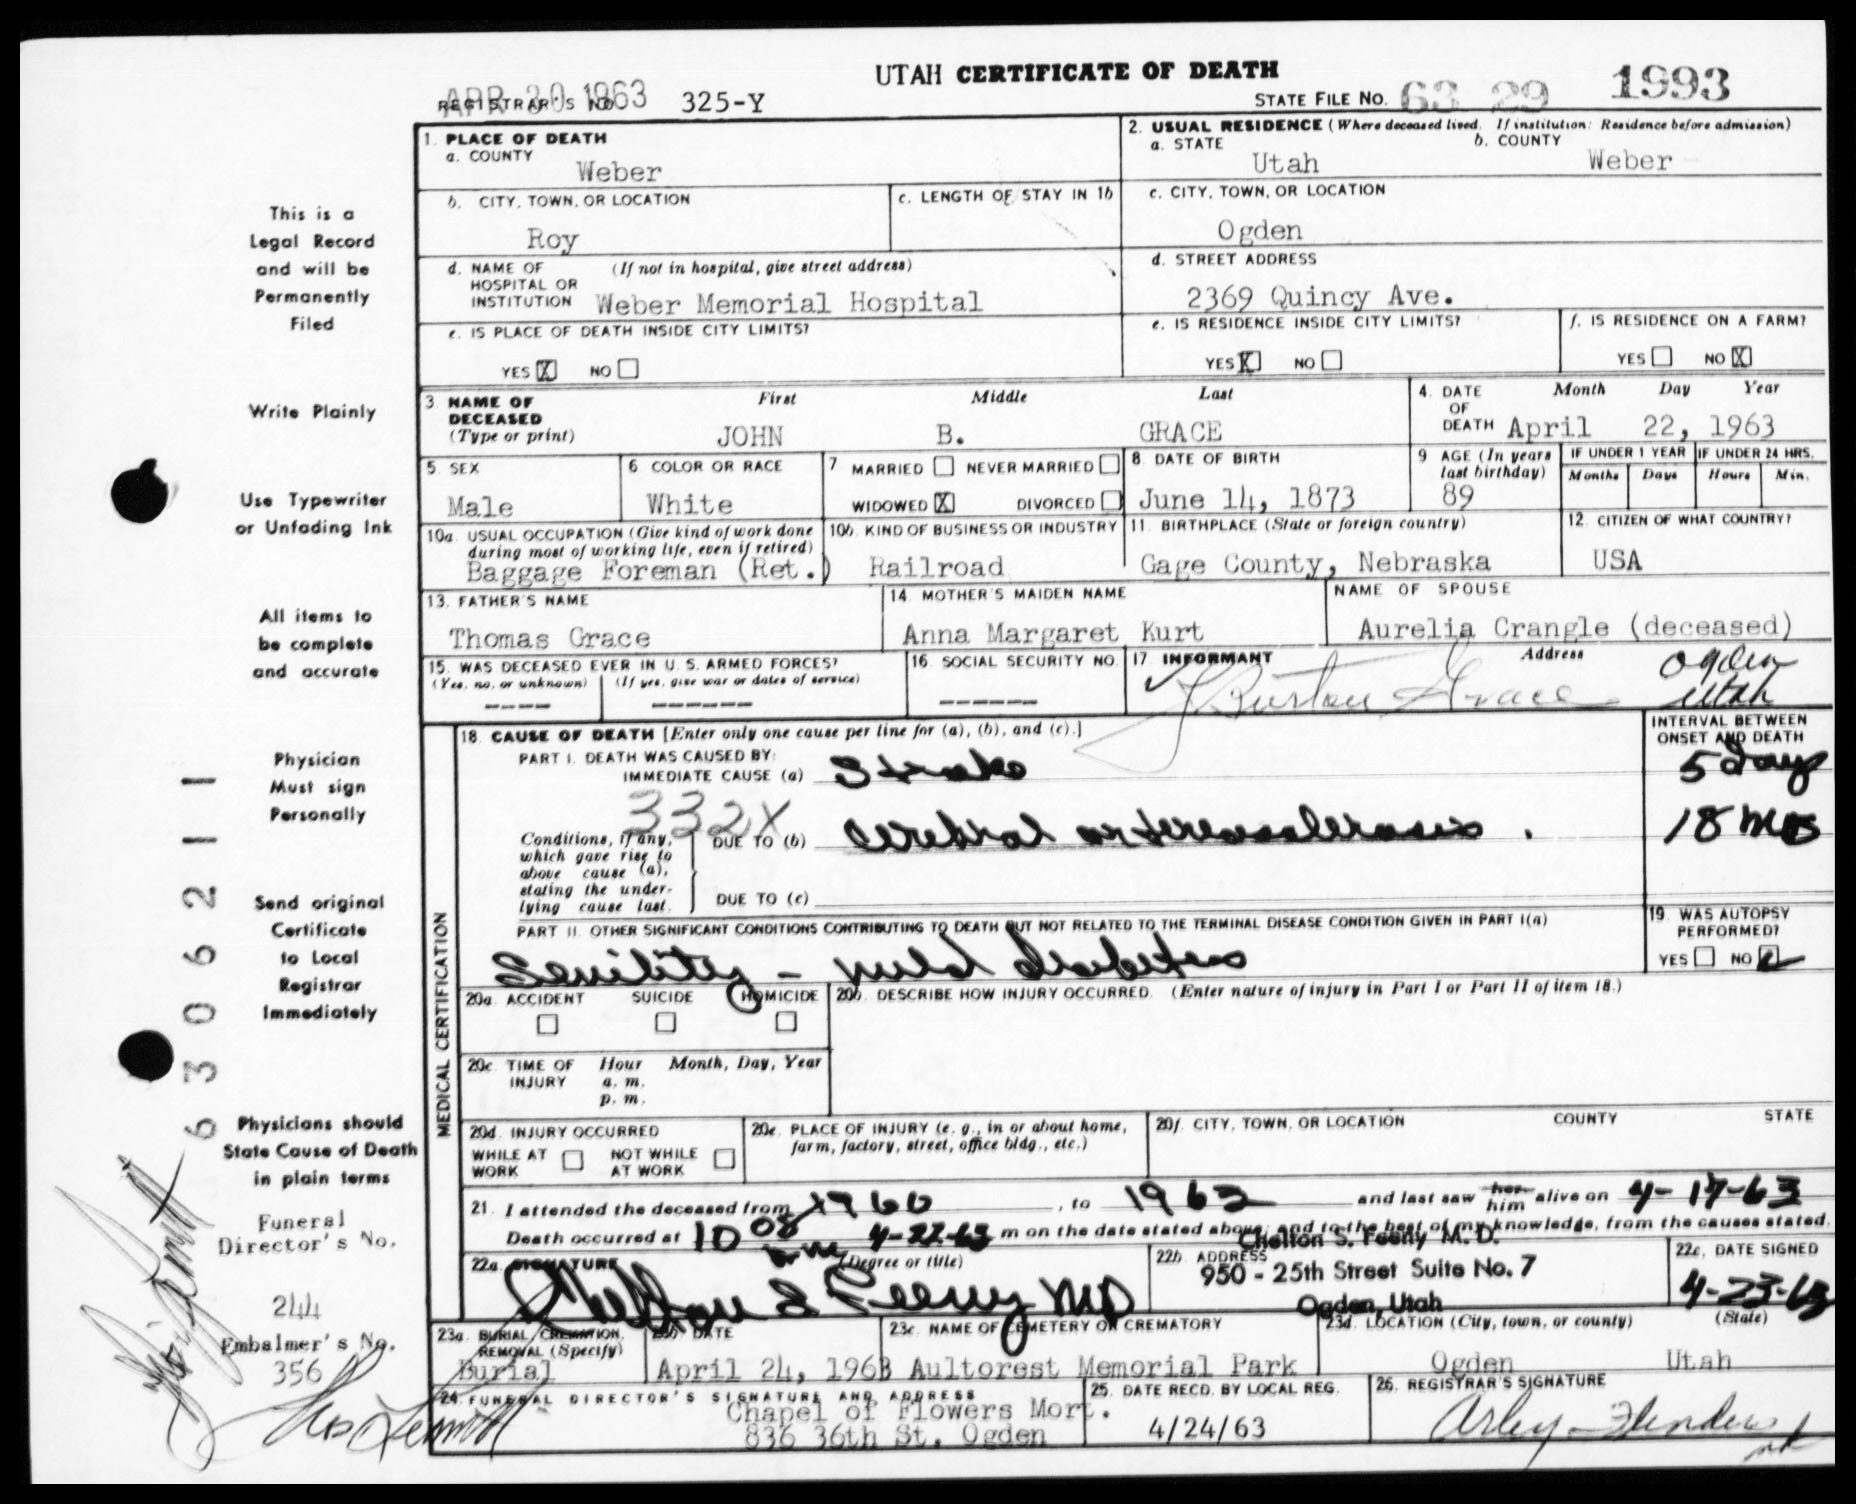 UTAH CERTIFICATE OF DEATH
APR 30 1963
REGISTRAR'S NO 325-Y
STATE FILE NO. 63 29 1993
1. PLACE OF DEATH
a. COUNTY
Weber
2. USUAL RESIDENCE (Where deceased lived. If institution: Residence before admission)
a. STATE
Utah
b. COUNTY
Weber
b. CITY, TOWN, OR LOCATION
Roy
c. LENGTH OF STAY IN 1b
c. CITY, TOWN, OR LOCATION
Ogden
d. NAME OF HOSPITAL OR INSTITUTION (If not in hospital, give street address)
Weber Memorial Hospital
d. STREET ADDRESS
2369 Quincy Ave.
e. IS PLACE OF DEATH INSIDE CITY LIMITS?
YES X NO
e. IS RESIDENCE INSIDE CITY LIMITS?
YES X NO
f. IS RESIDENCE ON A FARM?
YES NO X
3. NAME OF DECEASED (Type or print)
First Middle Last
JOHN B. GRACE
4. DATE OF DEATH Month Day Year
April 22, 1963
5. SEX
Male
6 COLOR OR RACE
White
7 MARRIED NEVER MARRIED
WIDOWED X DIVORCED
8. DATE OF BIRTH
June 14, 1873
9 AGE (In years last birthday)
89
IF UNDER 1 YEAR
Months Days
IF UNDER 24 HRS.
Hours Min.
10a. USUAL OCCUPATION (Give kind of work done during most of working life, even if retired)
Baggage Foreman (Ret.)
10b. KIND OF BUSINESS OR INDUSTRY
Railroad
11. BIRTHPLACE (State or foreign country)
Gage County, Nebraska
12. CITIZEN OF WHAT COUNTRY?
USA
13. FATHER'S NAME
Thomas Grace
14. MOTHER'S MAIDEN NAME
Anna Margaret Kurt
NAME OF SPOUSE
Aurelia Crangle (deceased)
15. WAS DECEASED EVER IN U. S. ARMED FORCES?
(Yes, no, or unknown) (If yes, give war or dates of service)
---- ------
16. SOCIAL SECURITY NO.
------
17. INFORMANT Address
J Burton Grace Ogden
Utah
MEDICAL CERTIFICATION
18. CAUSE OF DEATH [Enter only one cause per line for (a), (b), and (c).]
INTERVAL BETWEEN ONSET AND DEATH
PART I. DEATH WAS CAUSED BY:
IMMEDIATE CAUSE (a) Stroke 5 Days
332X
Conditions, if any, which gave rise to above cause (a), stating the underlying cause last.
DUE TO (b) Cerebral arteriosclerosis. 18 mos
DUE TO (c)
PART II. OTHER SIGNIFICANT CONDITIONS CONTRIBUTING TO DEATH BUT NOT RELATED TO THE TERMINAL DISEASE CONDITION GIVEN IN PART I(a)
Senility - mild diabetes
19. WAS AUTOPSY PERFORMED?
YES NO
20a. ACCIDENT SUICIDE HOMICIDE
20b. DESCRIBE HOW INJURY OCCURRED. (Enter nature of injury in Part I or Part II of item 18.)
20c. TIME OF INJURY Hour Month, Day, Year
a. m.
p. m.
20d. INJURY OCCURRED
WHILE AT WORK NOT WHILE AT WORK
20e. PLACE OF INJURY (e. g., in or about home, farm, factory, street, office bldg., etc.)
20f. CITY, TOWN, OR LOCATION COUNTY STATE
21. I attended the deceased from 1960, to 1963 and last saw her him alive on 4-17-63
Death occurred at 10 08 4-22-63 m on the date stated above; and to the best of my knowledge, from the causes stated.
22a. SIGNATURE (Degree or title)
Chelton S Feeny MD
22b. ADDRESS
Chelton S. Feeny M. D.
950 - 25th Street Suite No. 7
Ogden, Utah
22c. DATE SIGNED
4-23-63
23a. BURIAL, CREMATION, REMOVAL (Specify)
Burial
23b. DATE
April 24, 1963
23c. NAME OF CEMETERY OR CREMATORY
Aultorest Memorial Park
23d. LOCATION (City, town, or county) (State)
Ogden Utah
24. FUNERAL DIRECTOR'S SIGNATURE AND ADDRESS
Chapel of Flowers Mort.
836 36th St. Ogden
25. DATE RECD. BY LOCAL REG.
4/24/63
26. REGISTRAR'S SIGNATURE
This is a
Legal Record
and will be
Permanently
Filed
Write Plainly
Use Typewriter
or Unfading Ink
All items to
be complete
and accurate
Physician
Must sign
Personally
Send original
Certificate
to Local
Registrar
Immediately
Physicians should
State Cause of Death
in plain terms
Funeral
Director's No.
244
Embalmer's No.
356
6 3 0 6 2 1 1